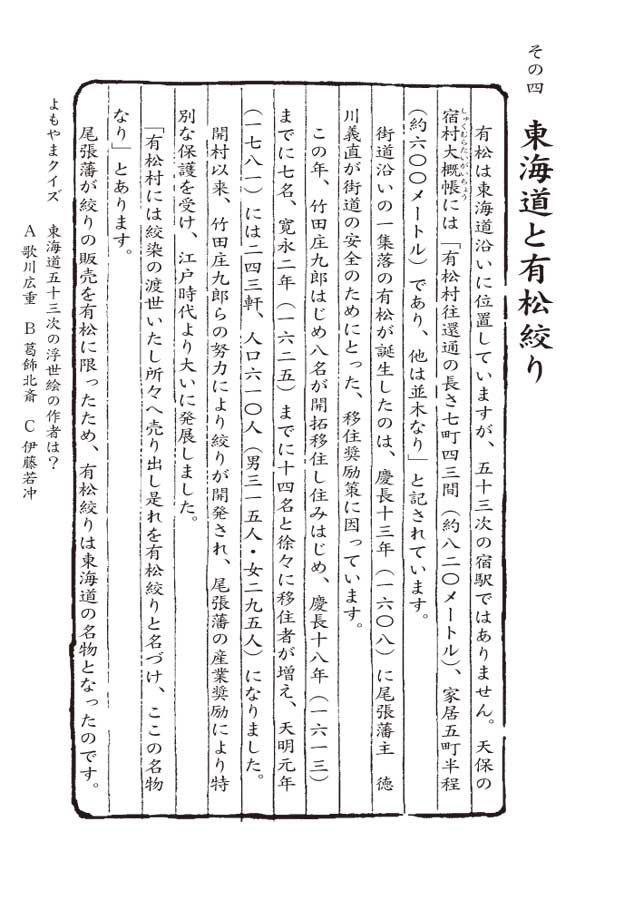 その四　東海道と有松絞り
有松は東海道沿いに位置していますが、五十三次の宿駅ではありません。天保の
しゅくむらたいがいちょう
宿村大概帳には「有松村往還通の長さ七町四三間（約八二〇メートル）、家居五町半程
（約六〇〇メートル）であり、他は並木なり」と記されています。
街道沿いの一集落の有松が誕生したのは、慶長十三年（一六〇八）に尾張藩主　徳
川義直が街道の安全のためにとった、移住奨励策に因っています。
この年、竹田庄九郎はじめ八名が開拓移住し住みはじめ、慶長十八年（一六一三）
までに七名、寛永二年（一六二五）までに十四名と徐々に移住者が増え、天明元年
（一七八一）には二四三軒、人口六一〇人（男三一五人・女二九五人）になりました。
開村以来、竹田庄九郎らの努力により絞りが開発され、尾張藩の産業奨励により特
別な保護を受け、江戸時代より大いに発展しました。
「有松村には絞染の渡世いたし所々へ売り出し是れを有松絞りと名づけ、ここの名物
なり」とあります。
尾張藩が絞りの販売を有松に限ったため、有松絞りは東海道の名物となったのです。
よもやまクイズ　東海道五十三次の浮世絵の作者は？
A 歌川広重　B 葛飾北斎　C 伊藤若冲